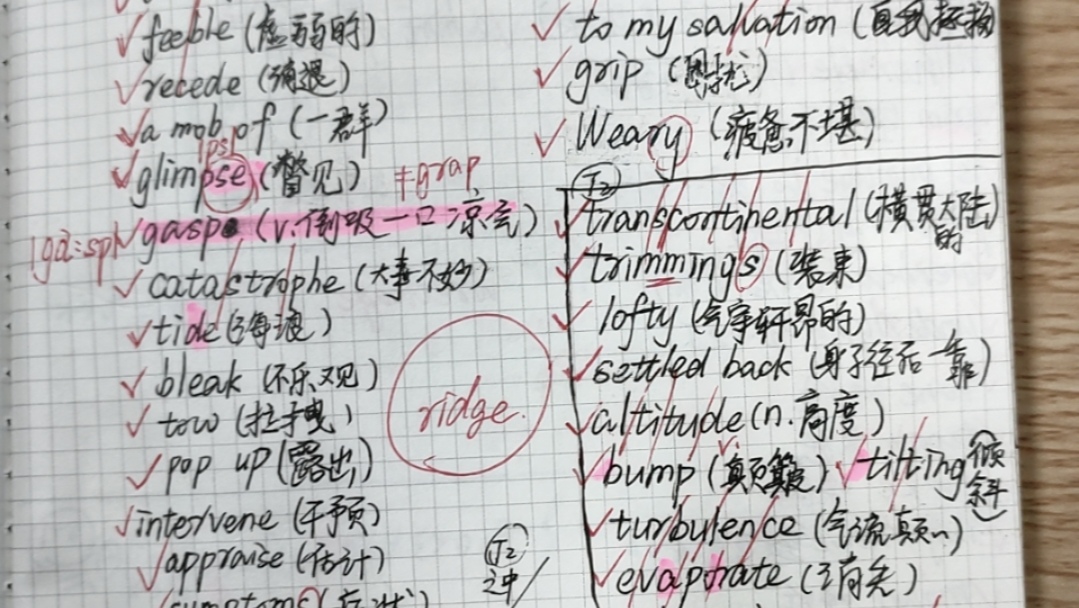 feeble (虚弱的)
recede (消退)
a mob of (一群)
psl
glimpse (瞥见) ≠grap
|ga:sp| gasp (v.倒吸一口凉气)
catastrophe (大事不妙)
tide (海浪)
bleak (不乐观)
tow (拉拽)
pop up (露出)
intervene (干预)
appraise (估计)
symptoms (症状)
ridge.
J2
之中
to my salvation (自我拯救)
grip
Weary (疲惫不堪)
J2
transcontinental (横贯大陆的)
trimmings (装束)
lofty (气宇轩昂的)
settled back (身子往后一靠)
altitude (n.高度)
v.
bump (颠簸) tilting (倾斜)
turbulence (气流颠)
evaporate (消失)